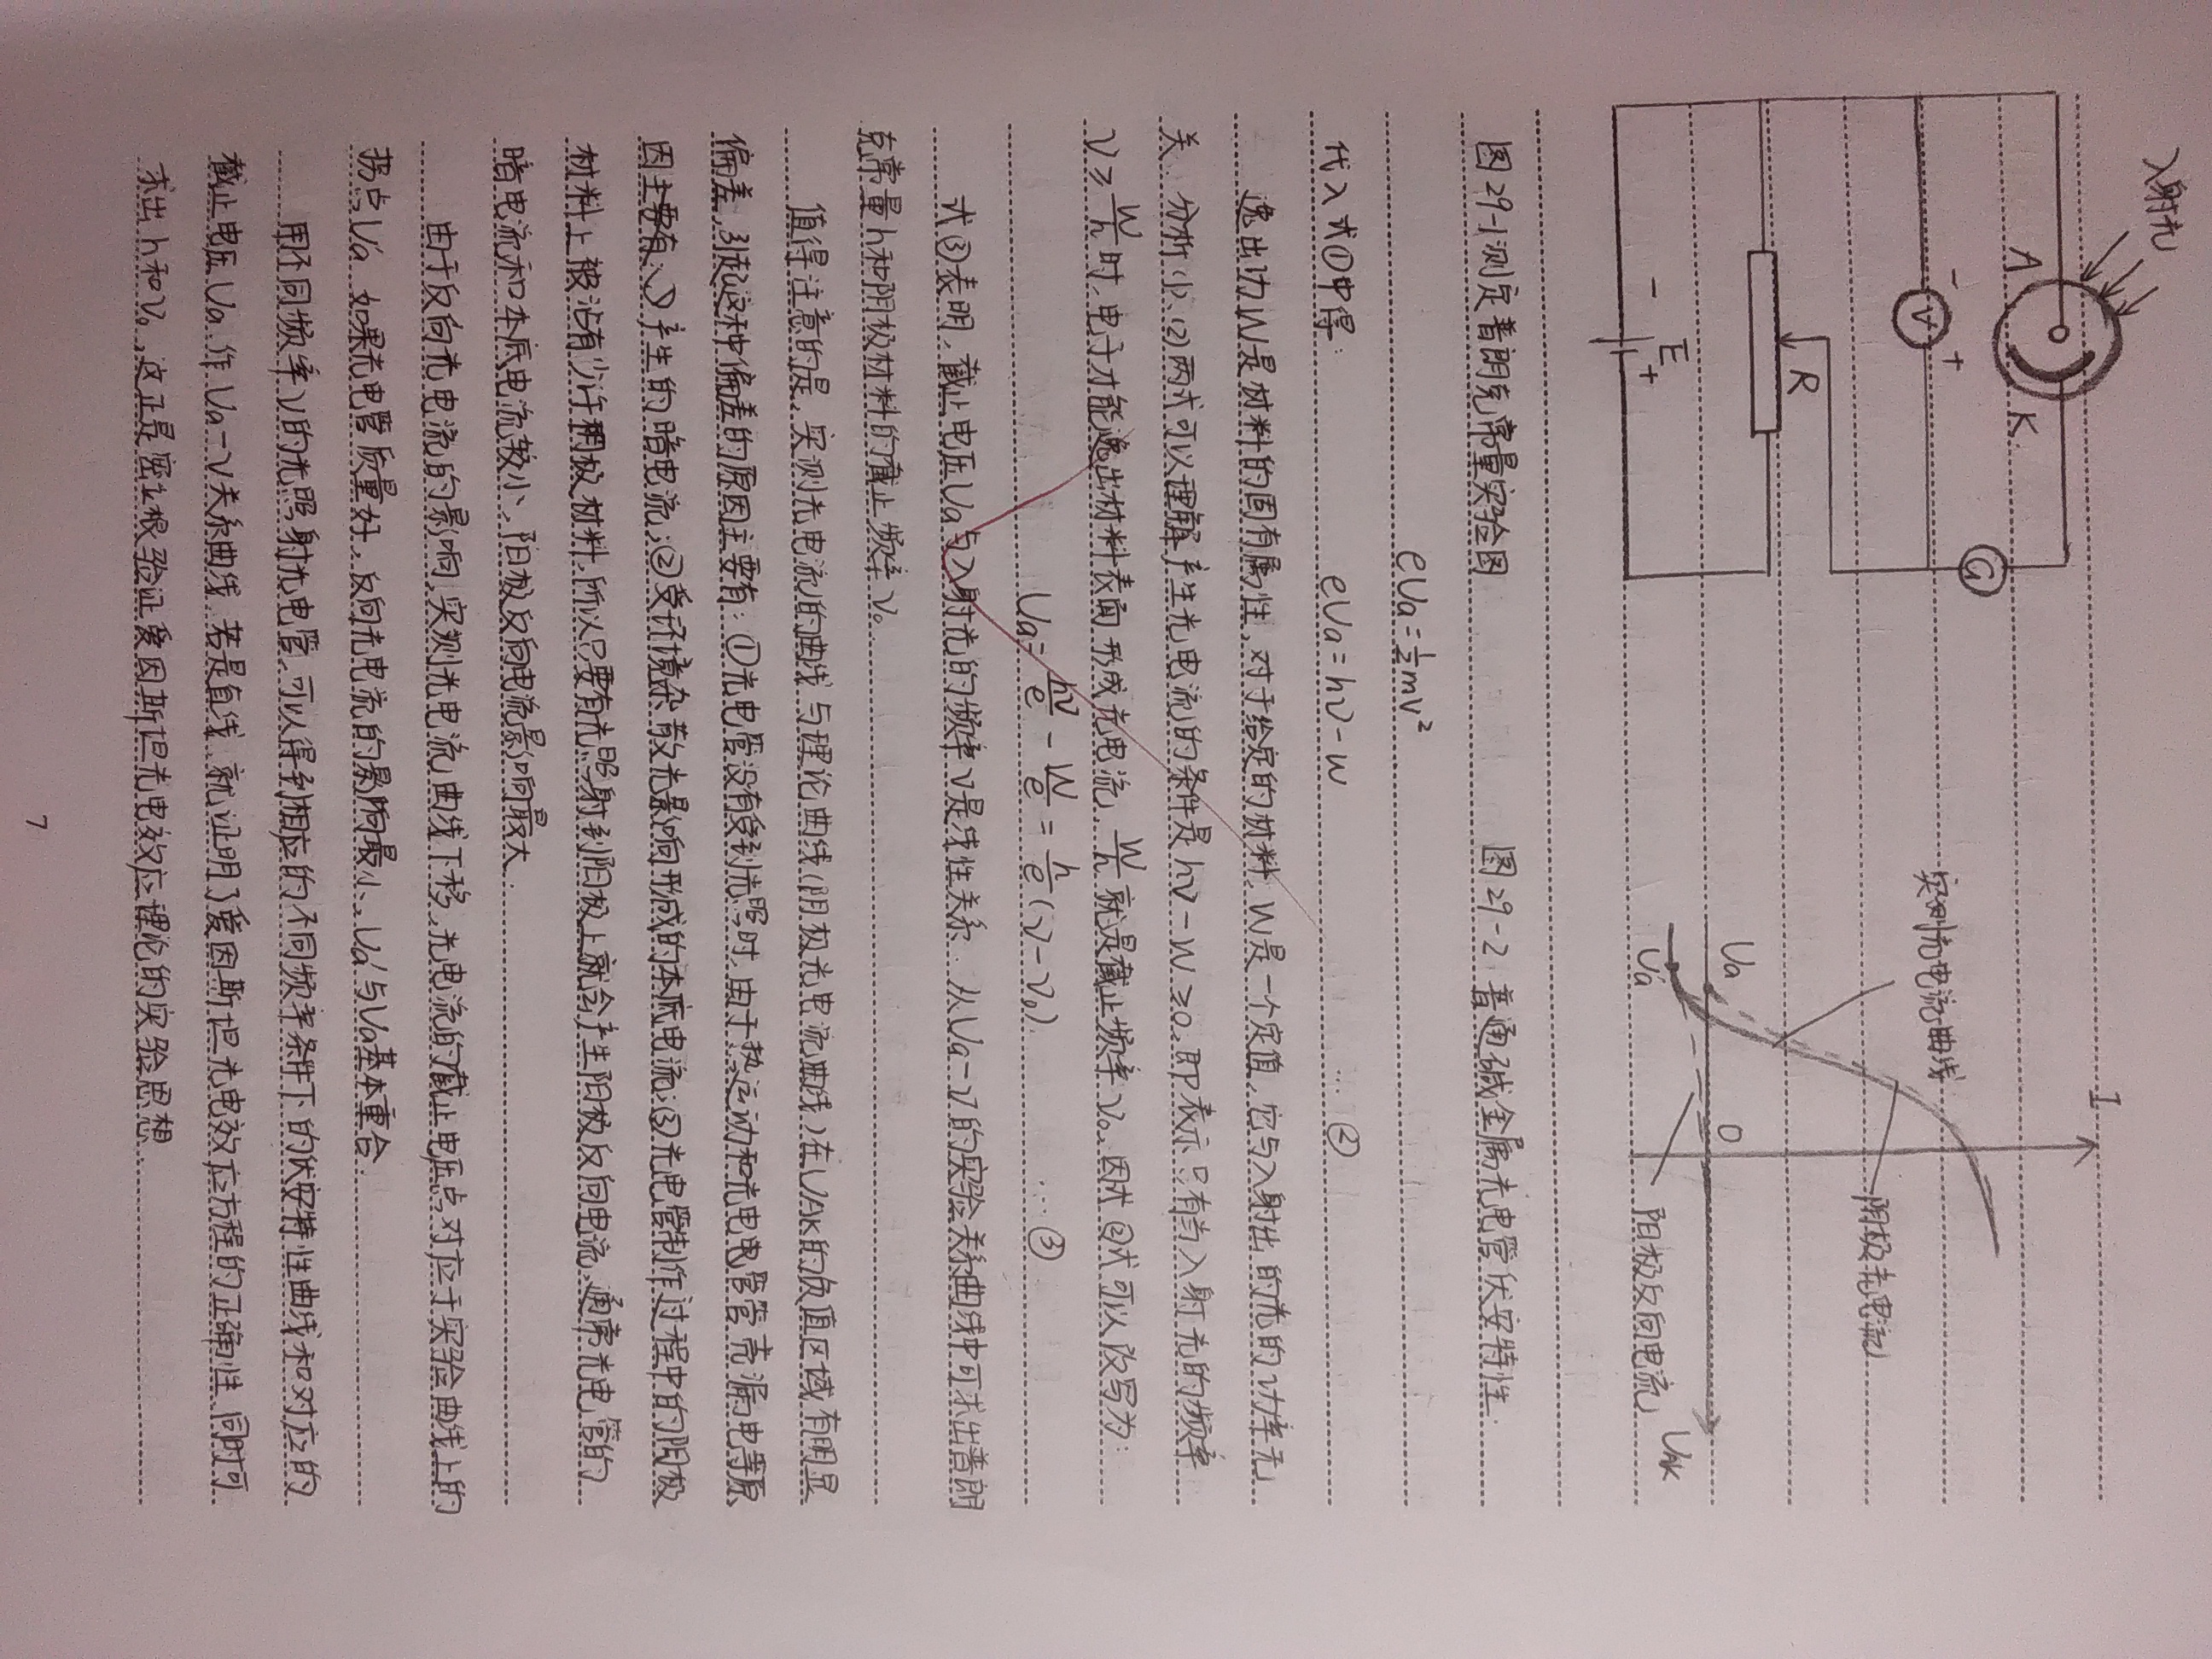 入射光
A
K
G
- V +
R
E
- +
I
实测光电流曲线
阴极光电流
Ua
O
UAK
Ua'
阳极反向电流
图29-1测定普朗克常量实验图 图29-2 普通碱金属光电管伏安特性
eUa=½mv²
代入式①中得: eUa=hν-W …②
逸出功W是材料的固有属性,对于给定的材料,W是一个定值,它与入射出的光的功率无
关.分析(1)、(2)两式可以理解产生光电流的条件是hν-W≥0,即表示只有当入射光的频率
ν≥W/h时,电子才能逸出材料表面形成光电流,W/h就是截止频率ν₀.因式②式可以改写为:
Ua=hν/e-W/e=h/e(ν-ν₀) …③
式③表明,截止电压Ua与入射光的频率ν是线性关系.从Ua-ν的实验关系曲线中可求出普朗
克常量h和阴极材料的截止频率ν₀
值得注意的是,实测光电流的曲线与理论曲线(阴极光电流曲线)在UAK的负值区域有明显
偏差,引起这种偏差的原因主要有:①光电管没有受到光照时,由于热运动和光电电管管壳漏电等原
因主要有:1)产生的暗电流;②受环境杂散光影响形成的本底电流;③光电管制作过程中的阳极
材料上被沾有少许阴极材料,所以只要有光照射到阳极上就会产生阳极反向电流,通常光电管的
暗电流和本底电流较小,阳极反向电流影响最大.
由于反向光电流的影响,实测光电流曲线下移,光电流的截止电压点对应于实验曲线上的
拐点Ua'.如果光电管质量好,反向光电流的影响最小,Ua'与Ua基本重合.
用不同频率ν的光照射光电管,可以得到相应的不同频率条件下的伏安特性曲线和对应的
截止电压Ua.作Ua-ν关系曲线.若是直线,就证明了爱因斯坦光电效应方程的正确性.同时可
求出h和ν₀,这正是密立根验证爱因斯坦光电效应理论的实验思想.
7